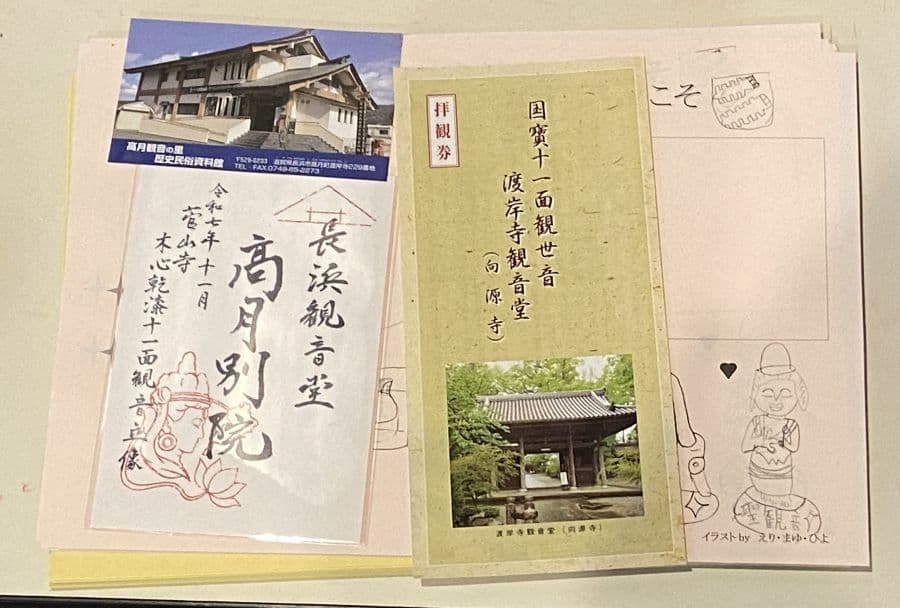 高月観音の里
歴史民俗資料館
〒529-0233 滋賀県長浜市高月町渡岸寺229番地
TEL・FAX.0749-85-2273
長浜観音堂
高月別院
令和七年十一月
菅山寺
木心乾漆十一面観音立像
拝観券
国寶十一面観世音
渡岸寺観音堂
(向源寺)
渡岸寺観音堂(向源寺)
こそ
聖観音
イラスト by えり・まゆ・ひよ